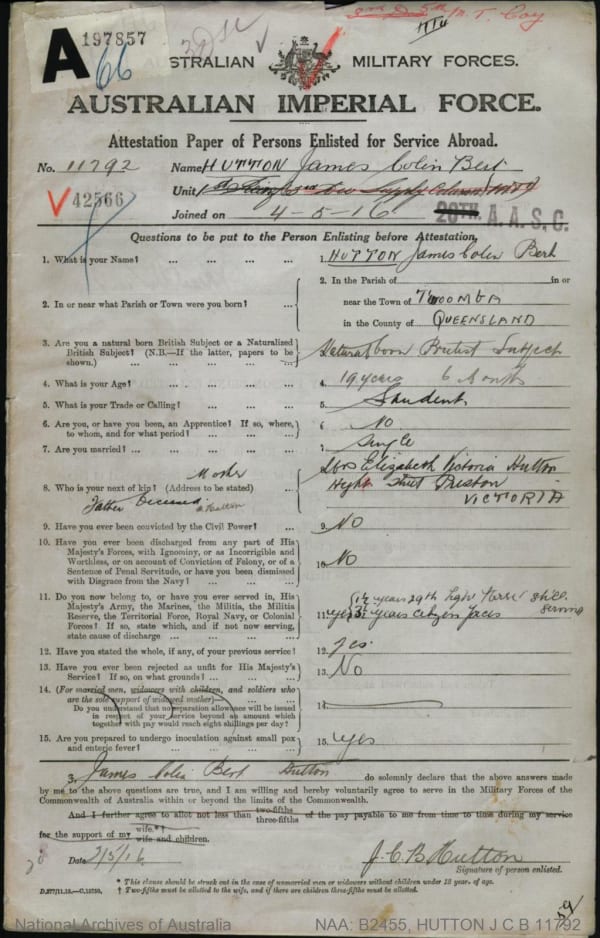 A 197857
66
AUSTRALIAN MILITARY FORCES.
AUSTRALIAN IMPERIAL FORCE.
Attestation Paper of Persons Enlisted for Service Abroad.
No. 11792 Name HUTTON James Colin Bert
42566 Unit
Joined on 4-5-16 20TH A.A.S.C.
Questions to be put to the Person Enlisting before Attestation.
1. What is your Name? ... ... ... ... 1. HUTTON James Colin Bert
2. In or near what Parish or Town were you born? ... 2. In the Parish of in or
near the Town of TWOOMBA
in the County of QUEENSLAND
3. Are you a natural born British Subject or a Naturalized
British Subject? (N.B.—If the latter, papers to be
shown.) ... ... ... ... ... 3. Natural born British Subject
4. What is your Age? ... ... ... ... 4. 19 years 6 Months
5. What is your Trade or Calling? ... ... ... 5. Student
6. Are you, or have you been, an Apprentice? If so, where,
to whom, and for what period? ... ... ... 6. No
7. Are you married? ... ... ... ... 7. Single
8. Who is your next of kin? (Address to be stated) ... 8. Mrs Elizabeth Victoria Hutton
Mother
Father Deceased
Street Preston
VICTORIA
9. Have you ever been convicted by the Civil Power? ... 9. No
10. Have you ever been discharged from any part of His
Majesty's Forces, with Ignominy, or as Incorrigible and
Worthless, or on account of Conviction of Felony, or of a
Sentence of Penal Servitude, or have you been dismissed
with Disgrace from the Navy? ... ... ... 10. No
11. Do you now belong to, or have you ever served in, His
Majesty's Army, the Marines, the Militia, the Militia
Reserve, the Territorial Force, Royal Navy, or Colonial
Forces? If so, state which, and if not now serving,
state cause of discharge ... ... ... 11. yes
years 29th Light Horse still serving
years Citizen Forces
12. Have you stated the whole, if any, of your previous service? 12. yes.
13. Have you ever been rejected as unfit for His Majesty's
Service? If so, on what grounds? ... ... ... 13. No
14. (For married men, widowers with children, and soldiers who
are the sole support of widowed mother)—
Do you understand that no separation allowance will be issued
in respect of your service beyond an amount which
together with pay would reach eight shillings per day? 14.
15. Are you prepared to undergo inoculation against small pox
and enteric fever? ... ... ... ... 15. yes
I, James Colin Bert Hutton do solemnly declare that the above answers made
by me to the above questions are true, and I am willing and hereby voluntarily agree to serve in the Military Forces of the
Commonwealth of Australia within or beyond the limits of the Commonwealth.
And I further agree to allot not less than two-fifths three-fifths of the pay payable to me from time to time during my service
for the support of my wife.* wife and children.
Date 2/5/16. J. C. B Hutton
Signature of person enlisted.
* This clause should be struck out in the case of unmarried men or widowers without children under 18 year. of age.
† Two-fifths must be allotted to the wife, and if there are children three-fifths must be allotted.
National Archives of Australia NAA: B2455, HUTTON J C B 11792